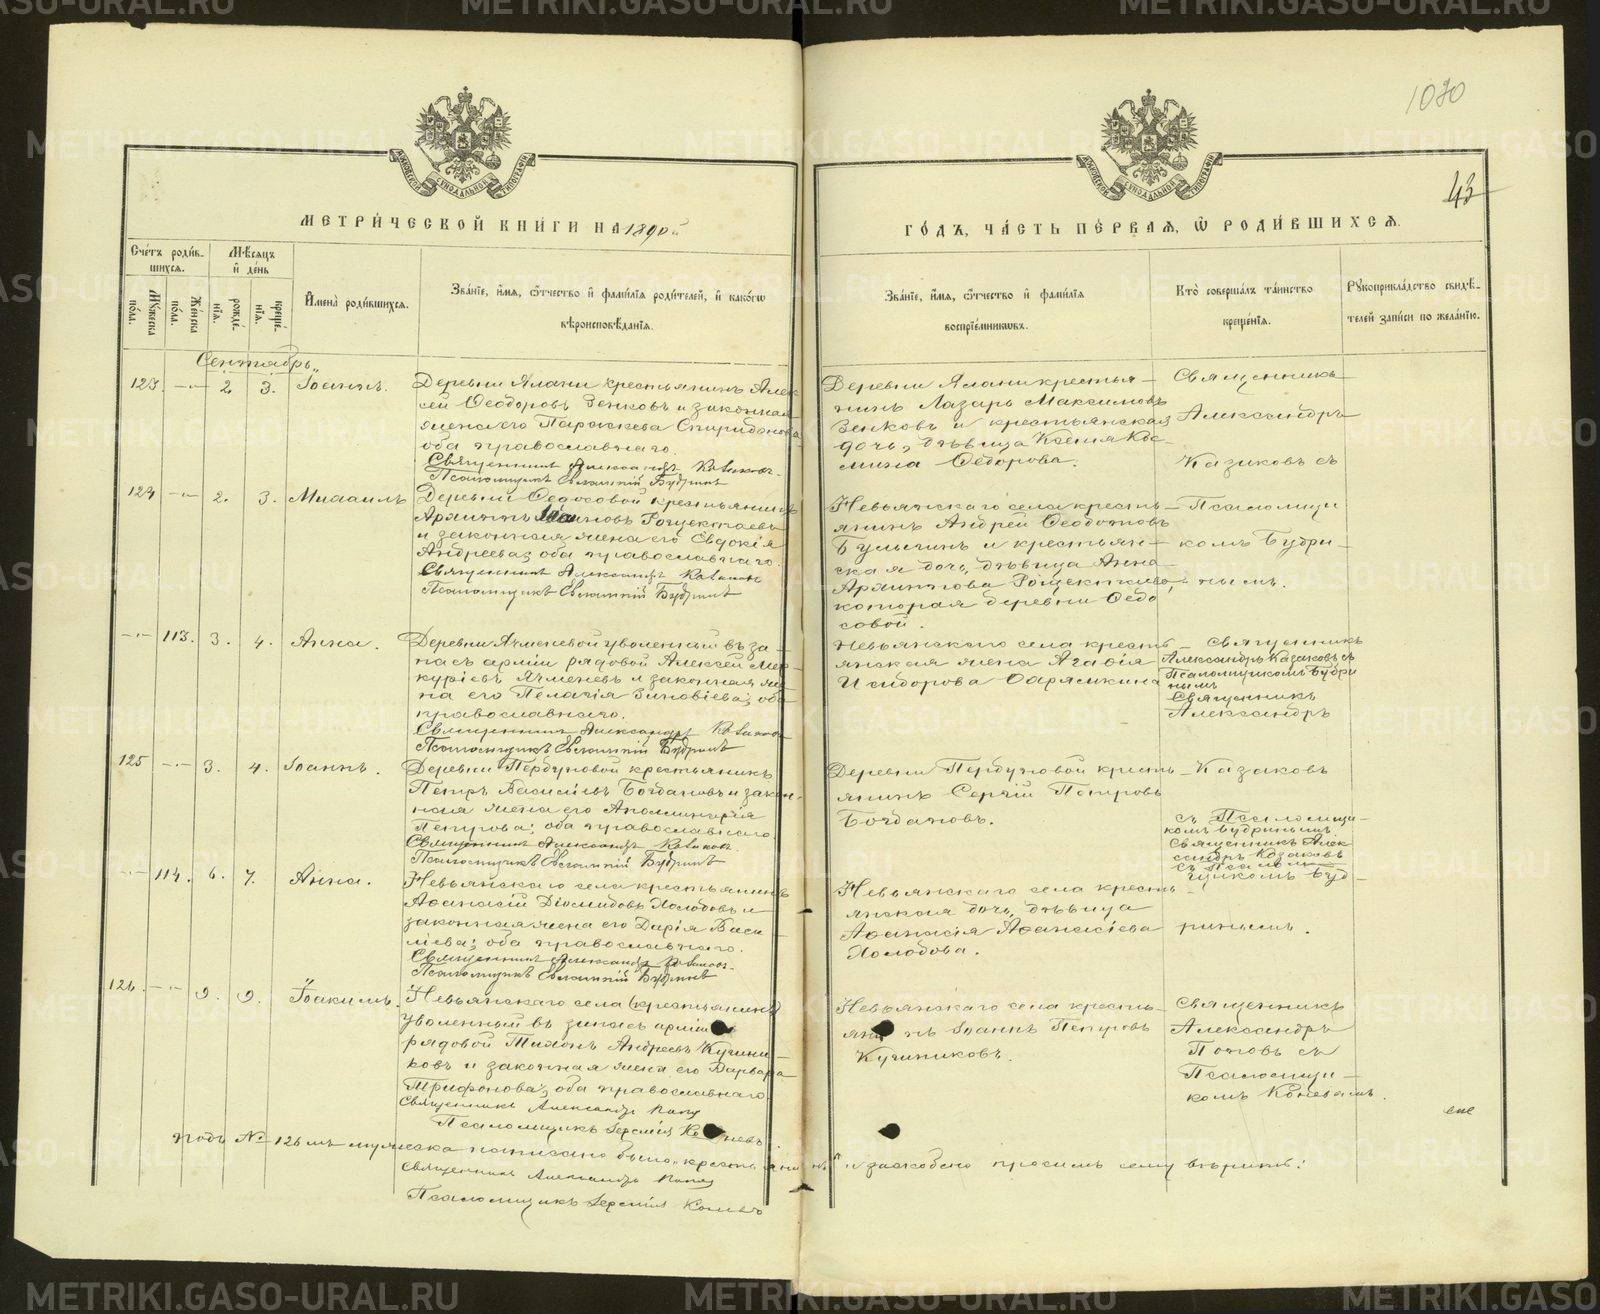 1030
43
МЕТРИ́ЧЕСКОЙ КНИ́ГИ НА 1890й
ГО́ДЪ, ЧА́СТЬ ПЕ́РВАЯ, Ѽ РОДИ́ВШИХСЯ.
Сче́тъ роди́вшихся.
Мѣ́сяцъ и̂ де́нь
Мꙋ́жеска по́ла.
Же́нска по́ла.
рожде́нїя.
креще́нїя.
И҆мена̀ роди́вшихся.
Зва́нїе, и҆́мя, ѻ҆́тчество и҆ фами́лїя роди́телей, и҆ како́гѡ
вѣроисповѣ́данїя.
Зва́нїе, и҆́мя, ѻ҆́тчество и҆ фами́лїя
воспрїе́мникѡвъ.
Кто̀ соверша́лъ та́инство
креще́нїя.
Рꙋкоприкла́дство свидѣ́-
телей за́писи по жела́нїю.
Сентябрь
123. 2. 3. Іоаннъ.
Деревни Ялани крестьянинъ Алек-
сѣй Ѳеодоровъ Зенковъ и законная
жена его Параскева Спиридонова
оба православнаго.
Священникъ Александръ Казаковъ
Псаломщикъ Евгеній Будринъ
Деревни Ялани крестья-
нинъ Лазарь Максимовъ
Зенковъ и крестьянская
дочь, дѣвица Ксенія Кос-
мина Ѳедорова.
Священникъ
Александръ
Казаковъ съ
124 2. 3. Михаилъ
Деревни Ѳедосовой крестьянинъ
Архиппъ
и законная жена его Евдокія
Андреева; оба православнаго.
Священникъ Александръ Казаковъ
Псаломщикъ Евгеній Будринъ
Невьянскаго села кресть-
янинъ Андрей Ѳеодотовъ
Булыгинъ и крестьян-
ская дочь, дѣвица Анна
Архиппова
которая деревни Ѳедо
совой.
Псаломщи
комъ Будри-
нымъ.
113. 3. 4. Анна.
Деревни Ячменевой уволенный въ за-
пасъ арміи рядовой Алексѣй Мер-
куріевъ Ячменевъ и законная же-
на его Пелагія Зиновіева; оба
православнаго.
Священникъ Александръ Казаковъ
Псаломщикъ Евгеній Будринъ
Невьянскаго села кресть-
янская жена Агафія
Исидорова
Священникъ
Александръ Казаковъ съ
Псаломщикомъ Будри
нымъ
Священникъ
Александръ
125 3. 4. Іоаннъ.
Деревни Першуновой крестьянинъ
Петръ Василіевъ Богдановъ и закон-
ная жена его Аполлинарія
Петрова; оба православнаго.
Священникъ Александръ Казаковъ
Псаломщикъ Евгеній Будринъ
Деревни Першуновой кресть-
янинъ Сергій Петровъ
Богдановъ.
Казаковъ
съ Псаломщи-
комъ Будринымъ
Священникъ Алек
сандръ Казаковъ
съ Псалом
щикомъ Буд-
114. 6. 7. Анна.
Невьянскаго села крестьянинъ
Аѳанасій Діомидовъ Холодовъ и
законная жена его Дарія Васи
лиева; оба православнаго.
Священникъ Александръ Казаковъ
Псаломщикъ Евгеній Будринъ
Невьянскаго села кресть-
янская дочь, дѣвица
Аѳанасія Аѳанасіева
Холодова.
ринымъ.
126. 9. 9. Іоакимъ.
Невьянскаго села (крестьянинъ)
уволенный въ запасъ арміи
рядовой Тихонъ Андреевъ Кучини-
ковъ и законная жена его Варвара
Трифонова; оба православнаго
Священникъ Александръ Поповъ
Псаломщикъ Іеремія Коневъ
Невьянскаго села кресть-
янинъ Іоаннъ Петровъ
Кучиниковъ.
Священникъ
Александръ
Поповъ съ
Псаломщи-
комъ Коневымъ.
Подъ № 126мъ мужеска написано было „крестьянинъ“ и заскоблено просимъ сему вѣрить:
Священникъ Александръ Поповъ
Псаломщикъ Іеремія Коневъ
METRIKI.GASO-URAL.RU